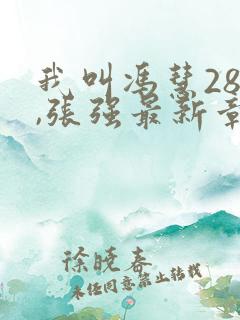 我叫冯慧28
,张强最新章
徐晓春
未经同意禁止转载